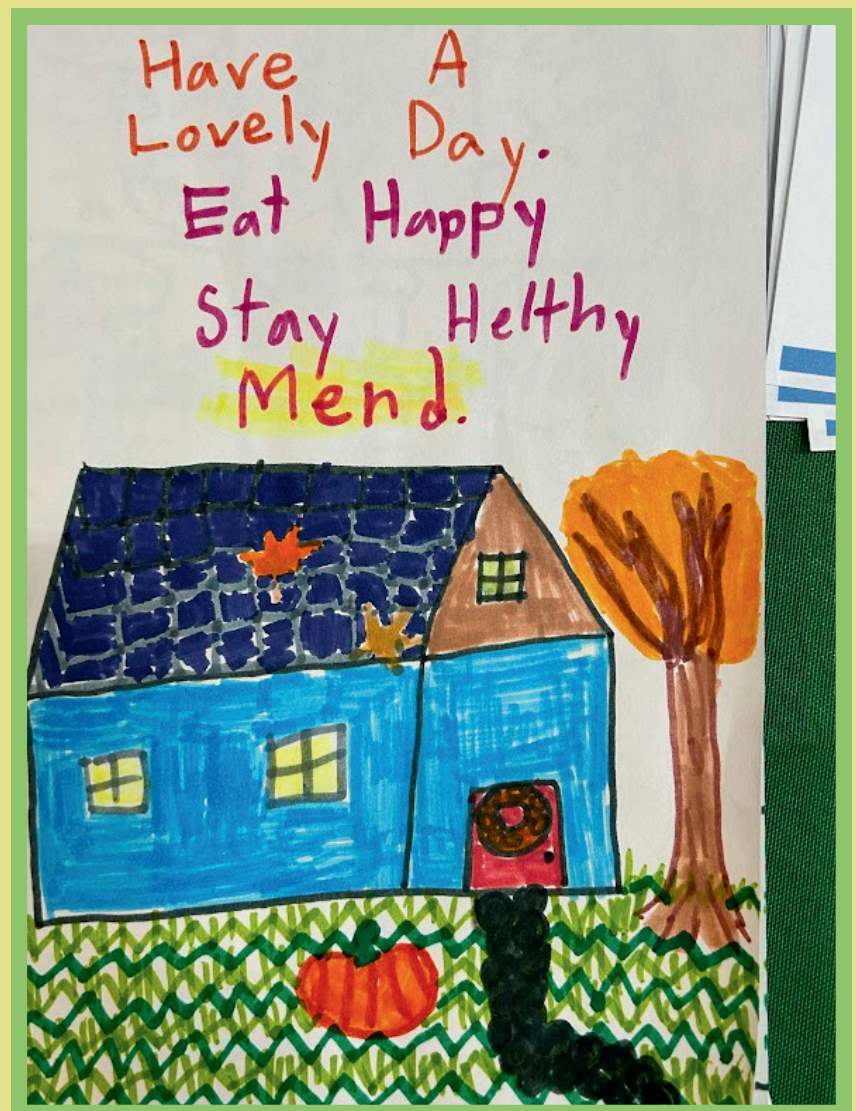 Have A
Lovely Day.
Eat Happy
Stay Helthy
Mend.